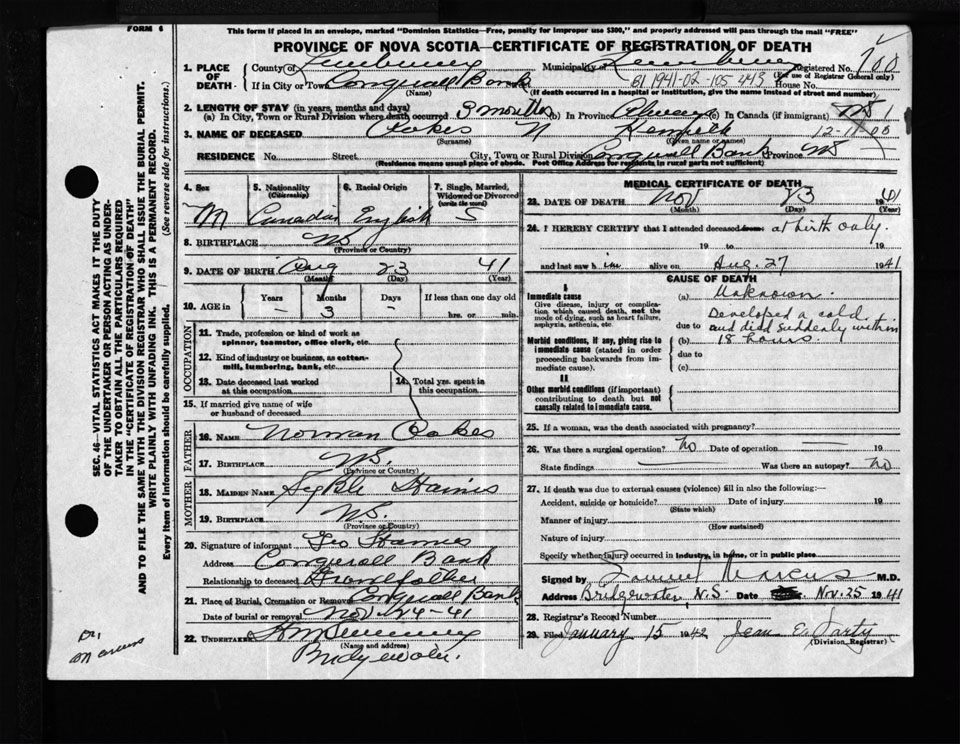 FORM 6
This form if placed in an envelope, marked "Dominion Statistics—Free, penalty for improper use $300," and properly addressed will pass through the mail "FREE"
PROVINCE OF NOVA SCOTIA—CERTIFICATE OF REGISTRATION OF DEATH
1. PLACE OF DEATH— County of Lunenburg Municipality of Lunenburg Registered No. 100
(For use of Registrar General only)
If in City or Town Conquerall Bank Street 1941-02-105 2436 House No.
(Name) (If death occurred in a hospital or institution, give the name instead of street and number)
2. LENGTH OF STAY (in years, months and days)
(a) In City, Town or Rural Division where death occurred 3 months (b) In Province Always (c) In Canada (if immigrant)
3. NAME OF DECEASED Oakes N Kenneth
(Surname) (Given name or names)
RESIDENCE No. Street City, Town or Rural Division Conquerall Bank Province NS
(Residence means usual place of abode. Post Office Address for residents in rural parts not sufficient)
4. Sex 5. Nationality (Citizenship) 6. Racial Origin 7. Single, Married, Widowed or Divorced (write the word)
M Canadian English S
8. BIRTHPLACE NS
(Province or Country)
9. DATE OF BIRTH Aug 23 41
(Month) (Day) (Year)
10. AGE in Years Months Days If less than one day old
- 3 - hrs. or min.
OCCUPATION
11. Trade, profession or kind of work as spinner, teamster, office clerk, etc.
12. Kind of industry or business, as cotton-mill, lumbering, bank, etc.
13. Date deceased last worked at this occupation 14. Total yrs. spent in this occupation
15. If married give name of wife or husband of deceased
FATHER
16. NAME Norman Oakes
17. BIRTHPLACE NS.
(Province or Country)
MOTHER
18. MAIDEN NAME
19. BIRTHPLACE NS.
(Province or Country)
20. Signature of informant Geo
Address Conquerall Bank
Relationship to deceased Grandfather
21. Place of Burial, Cremation or Removal Conquerall Bank
Date of burial or removal Nov. 24 - 41
22. UNDERTAKER
(Name and address)
Bridgewater.
MEDICAL CERTIFICATE OF DEATH
23. DATE OF DEATH Nov 23 1941
(Month) (Day)
24. I HEREBY CERTIFY that I attended deceased from at birth only.
19 to 19
and last saw him alive on Aug. 27 1941
CAUSE OF DEATH
I
Immediate cause
Give disease, injury or complication which caused death, not the mode of dying, such as heart failure, asphyxia, asthenia, etc.
(a) Unknown.
due to Developed a cold and died suddenly within
(b) 18 hours.
Morbid conditions, if any, giving rise to immediate cause (stated in order proceeding backwards from immediate cause).
due to
(c)
II
Other morbid conditions (if important) contributing to death but not causally related to immediate cause.
25. If a woman, was the death associated with pregnancy?
26. Was there a surgical operation? No Date of operation 19
State findings Was there an autopsy? No
27. If death was due to external causes (violence) fill in also the following:—
Accident, suicide or homicide? Date of injury 19
(State which)
Manner of injury
(How sustained)
Nature of injury
Specify whether injury occurred in industry, in home, or in public place
Signed by Marcus M.D.
Address Bridgewater N.S. Date Nov. 25 1941
28. Registrar's Record Number
29. Filed January 15 1942 Jean E.
(Division Registrar)
SEC. 46—VITAL STATISTICS ACT MAKES IT THE DUTY
OF THE UNDERTAKER OR PERSON ACTING AS UNDER-
TAKER TO OBTAIN ALL THE PARTICULARS REQUIRED
IN THE "CERTIFICATE OF REGISTRATION OF DEATH"
AND TO FILE THE SAME WITH THE DIVISION REGISTRAR WHO SHALL ISSUE THE BURIAL PERMIT.
WRITE PLAINLY WITH UNFADING INK. THIS IS A PERMANENT RECORD.
Every item of information should be carefully supplied. (See reverse side for instructions.)
Dr.
Marcus